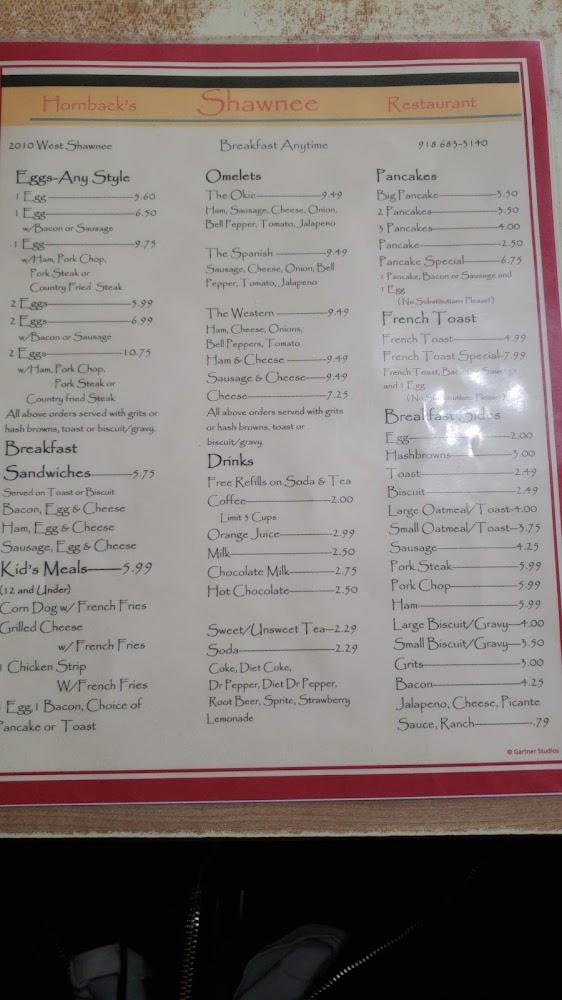 Hornback's Shawnee Restaurant
2010 West Shawnee
Breakfast Anytime
918 683-3140
Eggs-Any Style
1 Egg 3.60
1 Egg 6.50
w/Bacon or Sausage
1 Egg 9.75
w/Ham, Pork Chop,
Pork Steak or
Country Fried Steak
2 Eggs 5.99
2 Eggs 6.99
w/Bacon or Sausage
2 Eggs 10.75
w/Ham, Pork Chop,
Pork Steak or
Country fried Steak
All above orders served with grits or
hash browns, toast or biscuit/gravy.
Breakfast
Sandwiches 5.75
Served on Toast or Biscuit
Bacon, Egg & Cheese
Ham, Egg & Cheese
Sausage, Egg & Cheese
Kid's Meals 5.99
(12 and Under)
Corn Dog w/ French Fries
Grilled Cheese
w/ French Fries
1 Chicken Strip
W/French Fries
1 Egg,1 Bacon, Choice of
Pancake or Toast
Omelets
The Okie 9.49
Ham, Sausage, Cheese, Onion,
Bell Pepper, Tomato, Jalapeno
The Spanish 9.49
Sausage, Cheese, Onion, Bell
Pepper, Tomato, Jalapeno
The Western 9.49
Ham, Cheese, Onions,
Bell Peppers, Tomato
Ham & Cheese 9.49
Sausage & Cheese 9.49
Cheese 7.25
All above orders served with grits
or hash browns, toast or
biscuit/gravy.
Drinks
Free Refills on Soda & Tea
Coffee 2.00
Limit 3 Cups
Orange Juice 2.99
Milk 2.50
Chocolate Milk 2.75
Hot Chocolate 2.50
Sweet/Unsweet Tea 2.29
Soda 2.29
Coke, Diet Coke,
Dr Pepper, Diet Dr Pepper,
Root Beer, Sprite, Strawberry
Lemonade
Pancakes
Big Pancake 3.50
2 Pancakes 3.50
3 Pancakes 4.00
Pancake 2.50
Pancake Special 6.75
1 Pancake, Bacon or Sausage and
1 Egg
(No Substitutions Please!)
French Toast
French Toast 4.99
French Toast Special 7.99
French Toast, Bacon or Sausage
and 1 Egg
(No Substitutions Please!)
Breakfast Sides
Egg 2.00
Hashbrowns 3.00
Toast 2.49
Biscuit 2.49
Large Oatmeal/Toast 4.00
Small Oatmeal/Toast 3.75
Sausage 4.25
Pork Steak 5.99
Pork Chop 5.99
Ham 5.99
Large Biscuit/Gravy 4.00
Small Biscuit/Gravy 3.50
Grits 3.00
Bacon 4.25
Jalapeno, Cheese, Picante
Sauce, Ranch .79
© Gartner Studios